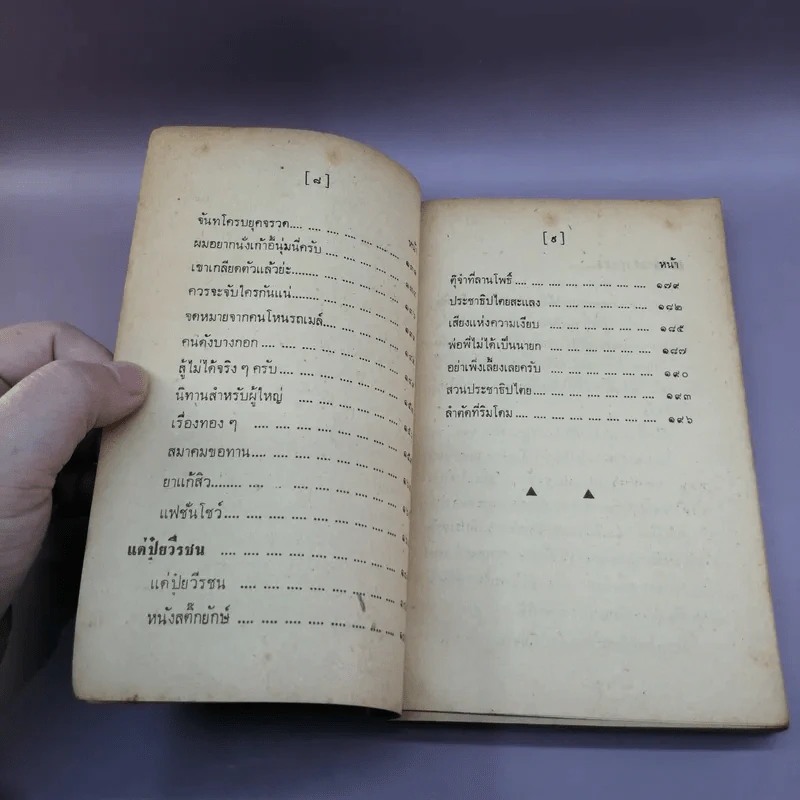 [ ๘ ]
จันทโครบยุคจรวด
ผมอยากนั่งเก้าอี้นุ่มนี่ครับ
เขาเกลียดตัวแล้วย่ะ
ควรจะจับใครกันแน่
จดหมายจากคนโหนรถเมล์
คนดังบางกอก
สู้ไม่ได้จริง ๆ ครับ
นิทานสำหรับผู้ใหญ่
เรื่องทอง ๆ
สมาคมขอทาน
ยาแก้สิว
แฟชั่นโชว์
แด่ปุ๋ยวีรชน
แด่ปุ๋ยวีรชน
หนังสติ๊กยักษ์
[ ๙ ]
หน้า
ตุ๊จ๋าที่ลานโพธิ์ ๑๗๙
ประชาธิปไตยสะแลง ๑๘๒
เสียงแห่งความเงียบ ๑๘๕
พ่อพี่ไม่ได้เป็นนายก ๑๘๗
อย่าเพิ่งเลี้ยงเลยครับ ๑๙๐
สวนประชาธิปไตย ๑๙๓
ลำตัดที่ริมโดม ๑๙๖